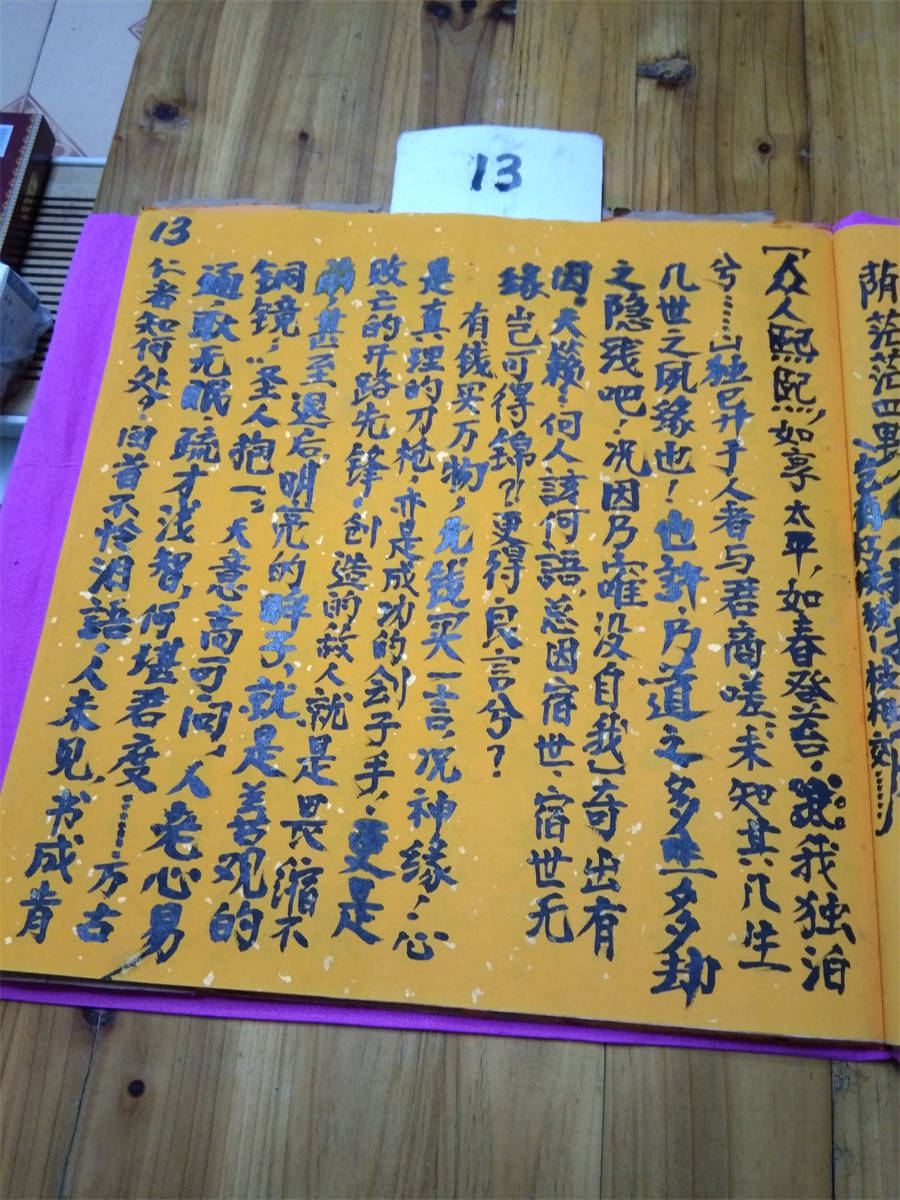 13
13
「众人熙熙，如享太平，如春登苔。我我独泊
兮……山独已异于人者与君商嗟：未知其几生
几世之夙缘也！也许，乃道之多生多劫
之隐残吧！况因乃唯没自我」奇出有
因。天籁：何人該何語，总因宿世、宿世无
缘岂可得錦？！更得良言兮？
有钱买万物，无钱买一言，况神缘！：心
是真理的刀枪，亦是成功的刽子手，：更是
败亡的开路先锋！创造的敌人就是畏缩不
前，甚至退后，明亮的眸子，就是善观的
铜镜，“圣人抱一”天意高可问，人老心易
通，歌无眠 疏才浅智，何堪君度……方古
仁者知何处，回首不怜泪語，人未见，书成肯
荫茫茫四野